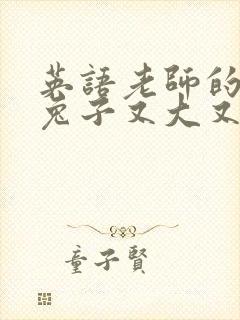 英語老師的
兔子又大又
童子賢